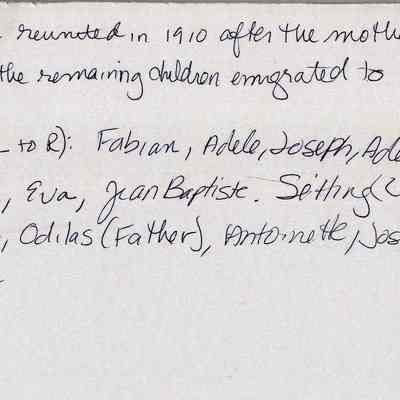 reunited in 1910 after the mothe
the remaining children emigrated to
L to R): Fabian, Adele, Joseph, Ade
, Eva, Jean Baptiste. Sitting (
, Odilas (Father), Antoinette, Jos